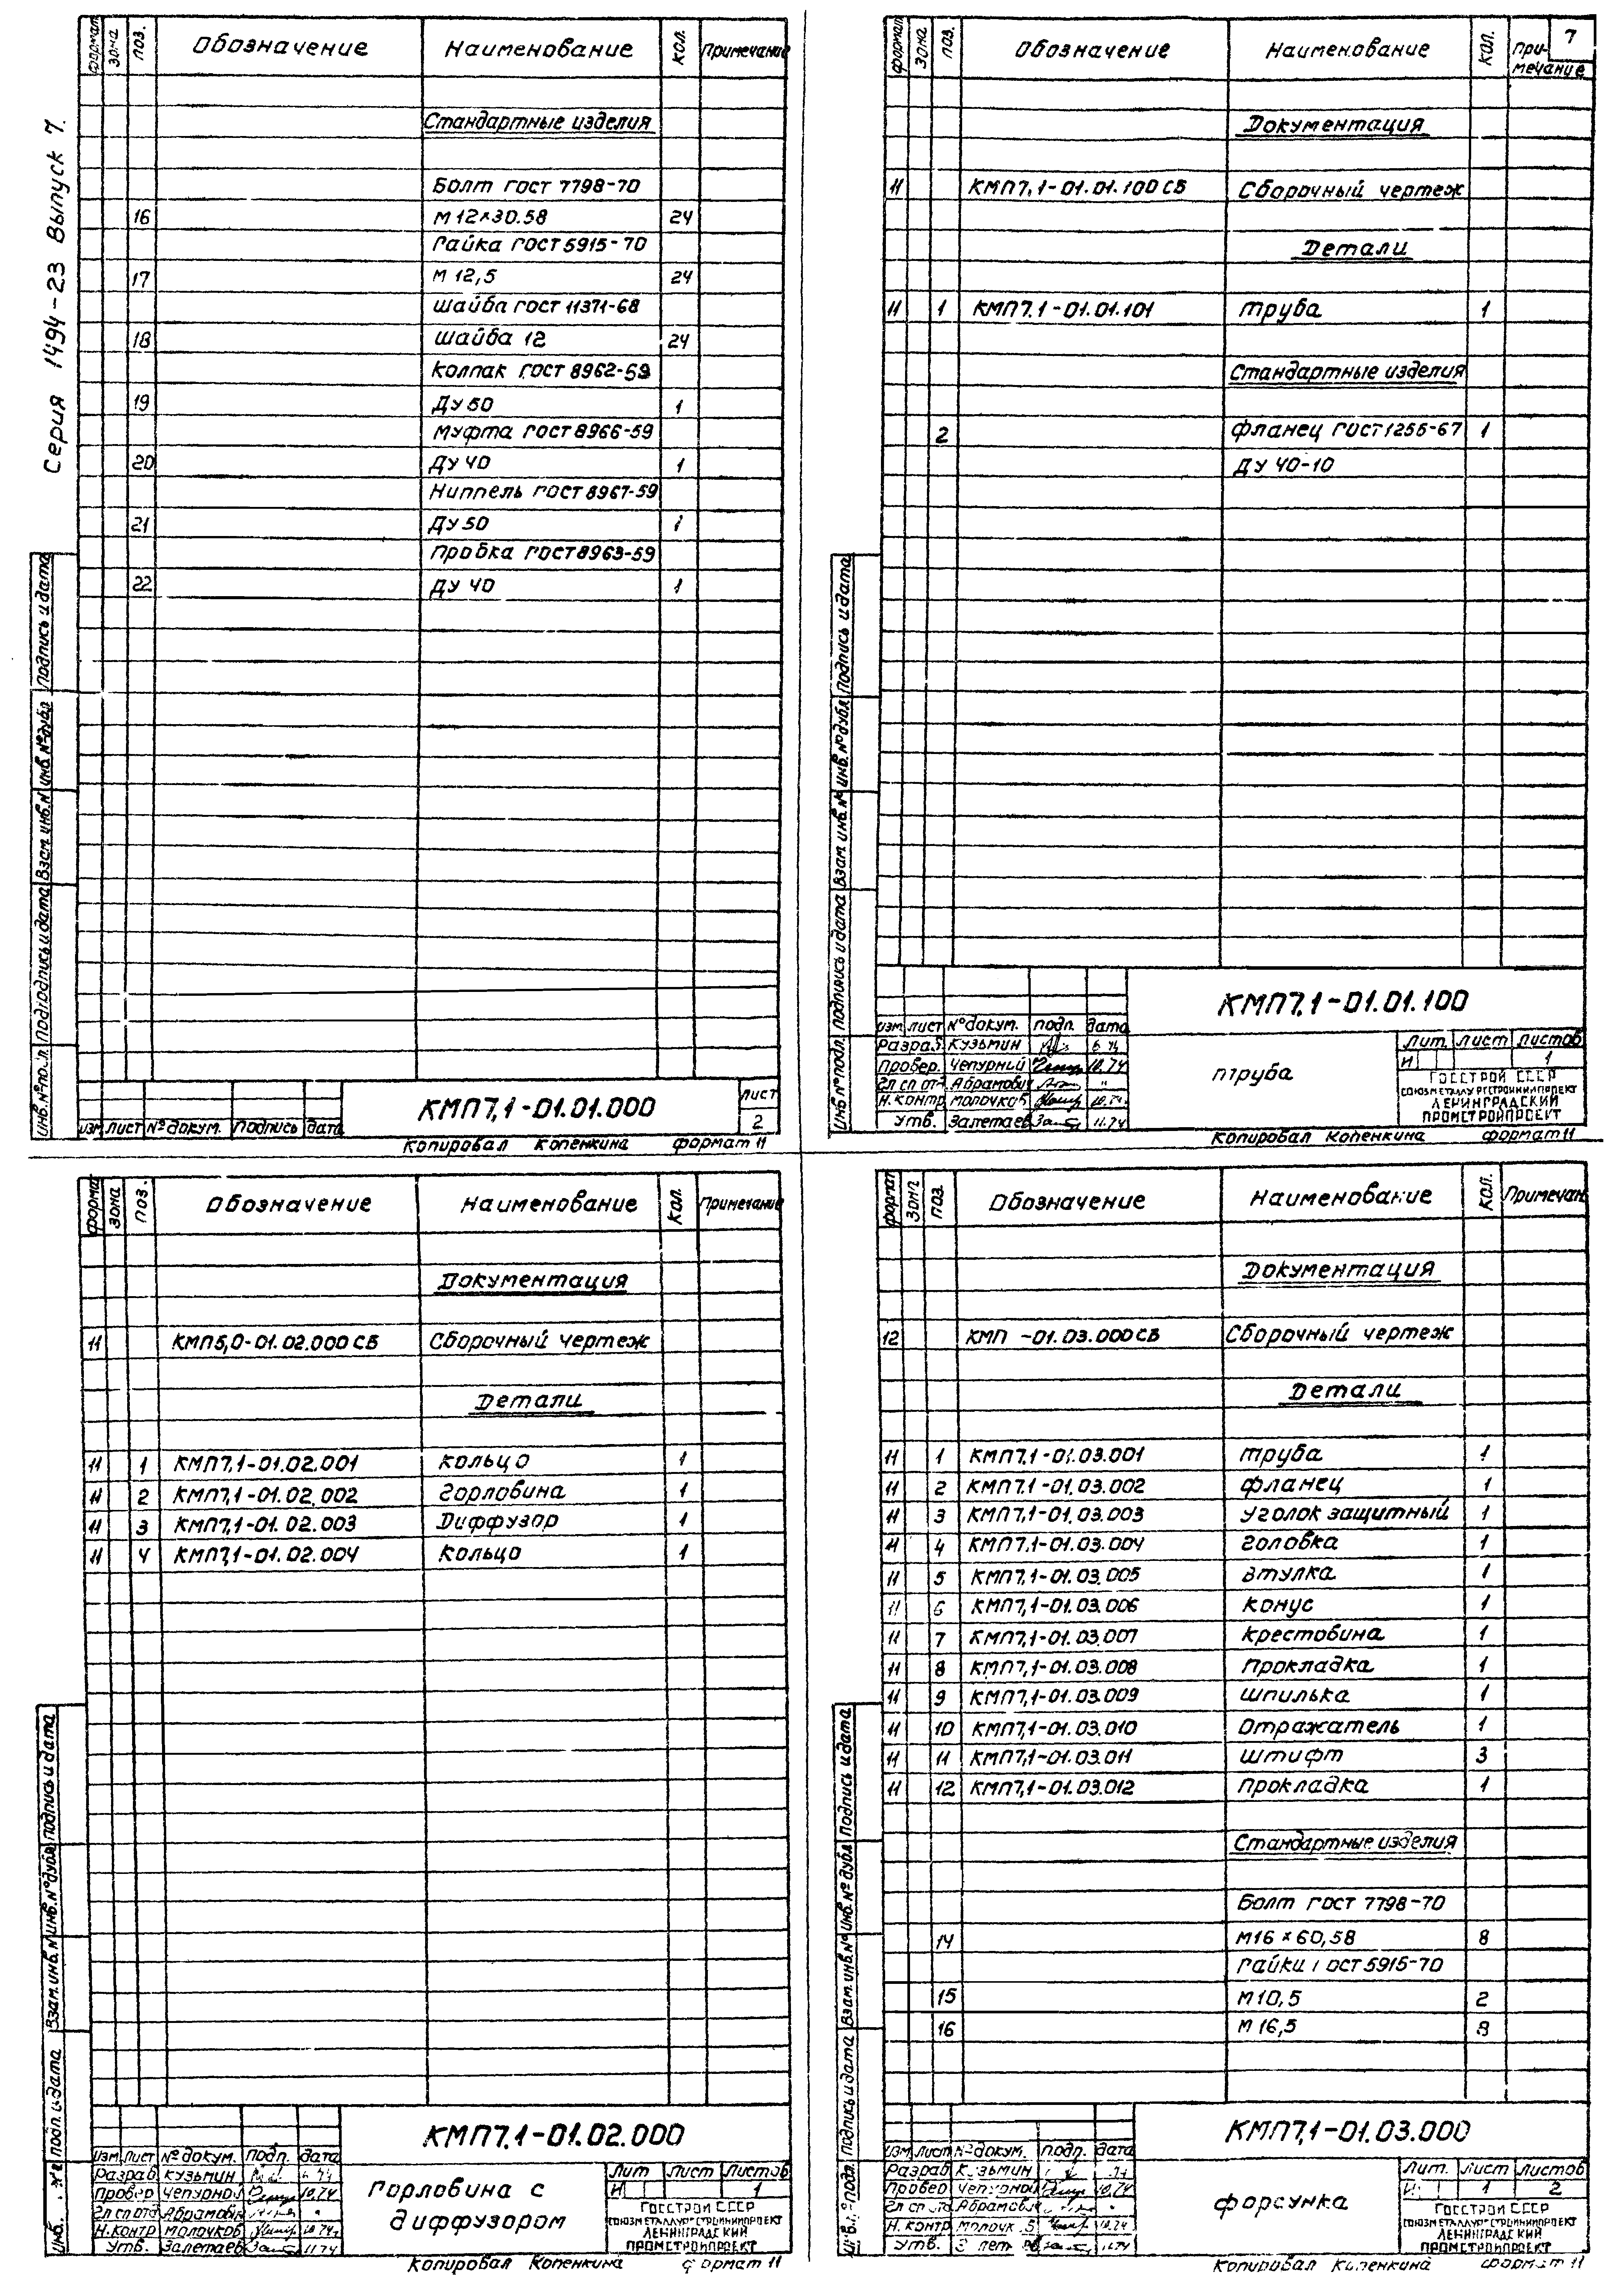 Серия 1494-23 Выпуск 7.
формат зона поз. Обозначение Наименование кол. Примечание
Стандартные изделия
Болт ГОСТ 7798-70
16 М 12×30.58 24
Гайка ГОСТ 5915-70
17 М 12,5 24
Шайба ГОСТ 11371-68
18 Шайба 12 24
Колпак ГОСТ 8962-59
19 ДУ 50 1
Муфта ГОСТ 8966-59
20 ДУ 40 1
Ниппель ГОСТ 8967-59
21 ДУ 50 1
Пробка ГОСТ 8963-59
22 ДУ 40 1
Подпись и дата
Инв.№дубл
Взам инв.№
Подпись и дата
КМП7,1-01.01.000
Лист
2
Изм Лист № докум. Подпись Дата
Копировал Копенкина формат 11
7
формат зона поз. Обозначение Наименование кол. При-
мечание
Документация
11 КМП7,1-01.01.100 СБ Сборочный чертеж
Детали
11 1 КМП7.1-01.01.101 Труба 1
Стандартные изделия
2 Фланец ГОСТ 1255-67 1
ДУ 40-10
Подпись и дата
Инв.№дубл
Взам инв.№
Подпись и дата
Инв.№подл.
КМП7,1-01.01.100
Изм Лист № докум. подп. дата
Разраб. Кузьмин 6.74
Провер. Чепурный 10.74
Гл сп отд Абрамович "
Н.контр Молочков 10.74.
Утв. Залетаев 11.74
Труба
Лит. Лист Листов
И 1
ГОССТРОЙ СССР
СОЮЗМЕТАЛЛУРГСТРОЙНИИПРОЕКТ
ЛЕНИНГРАДСКИЙ
ПРОМСТРОЙПРОЕКТ
Копировал Копенкина формат 11
формат зона поз. Обозначение Наименование кол. Примечание
Документация
11 КМП5,0-01.02.000 СБ Сборочный чертеж
Детали
11 1 КМП7,1-01.02.001 Кольцо 1
11 2 КМП7,1-01.02.002 Горловина 1
11 3 КМП7,1-01.02.003 Диффузор 1
11 4 КМП7,1-01.02.004 Кольцо 1
Подпись и дата
Инв.№дубл
Взам.инв.№
Подп. и дата
КМП7,1-01.02.000
Изм Лист № докум. подп. дата
Разраб Кузьмин
Провер Чепурной 10.74
Гл сп отд Абрамович "
Н.контр Молочков 10.74
Утв. Залетаев 11.74
Горловина с
диффузором
Лит Лист Листов
И 1
ГОССТРОЙ СССР
СОЮЗМЕТАЛЛУРГСТРОЙНИИПРОЕКТ
ЛЕНИНГРАДСКИЙ
ПРОМСТРОЙПРОЕКТ
Копировал Копенкина формат 11
формат зона поз. Обозначение Наименование кол. Примечан.
Документация
12 КМП -01.03.000 СБ Сборочный чертеж
Детали
11 1 КМП7,1-01.03.001 Труба 1
11 2 КМП7.1-01.03.002 Фланец 1
11 3 КМП7,1-01.03.003 Уголок защитный 1
11 4 КМП7.1-01.03.004 Головка 1
11 5 КМП7,1-01.03.005 Втулка 1
11 6 КМП7,1-01.03.006 Конус 1
11 7 КМП7,1-01.03.007 Крестовина 1
11 8 КМП7,1-01.03.008 Прокладка 1
11 9 КМП7,1-01.03.009 Шпилька 1
11 10 КМП7,1-01.03.010 Отражатель 1
11 11 КМП7,1-01.03.011 Штифт 3
11 12 КМП7,1-01.03.012 Прокладка 1
Стандартные изделия
Болт ГОСТ 7798-70
14 М16×60,58 8
Гайки ГОСТ 5915-70
15 М10,5 2
16 М 16,5 8
Подпись и дата
Инв.№дубл
Взам.инв.№
Подпись и дата
КМП7,1-01.03.000
Изм Лист № докум. подп. дата
Разраб Кузьмин
Провер Чепурной 10.74
Гл сп отд Абрамович "
Н.контр Молочков 10.74
Утв. Залетаев 11.74
Форсунка
Лит. Лист Листов
И 1 2
ГОССТРОЙ СССР
СОЮЗМЕТАЛЛУРГСТРОЙНИИПРОЕКТ
ЛЕНИНГРАДСКИЙ
ПРОМСТРОЙПРОЕКТ
Копировал Копенкина формат 11